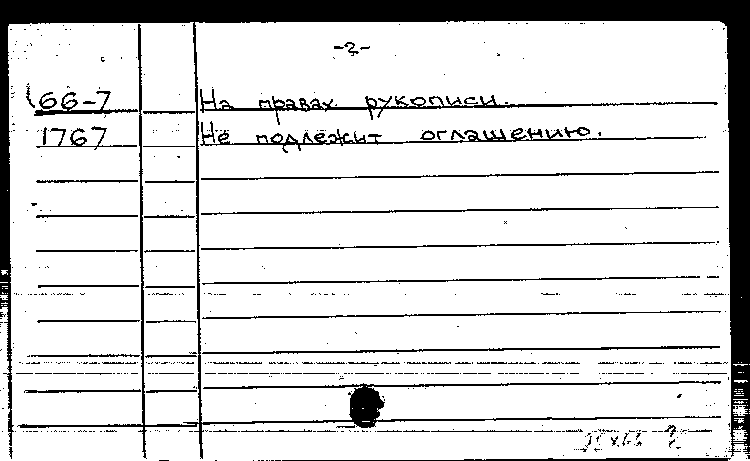 -2-
66-7 На правах рукописи.
1767 Не подлежит оглашению.